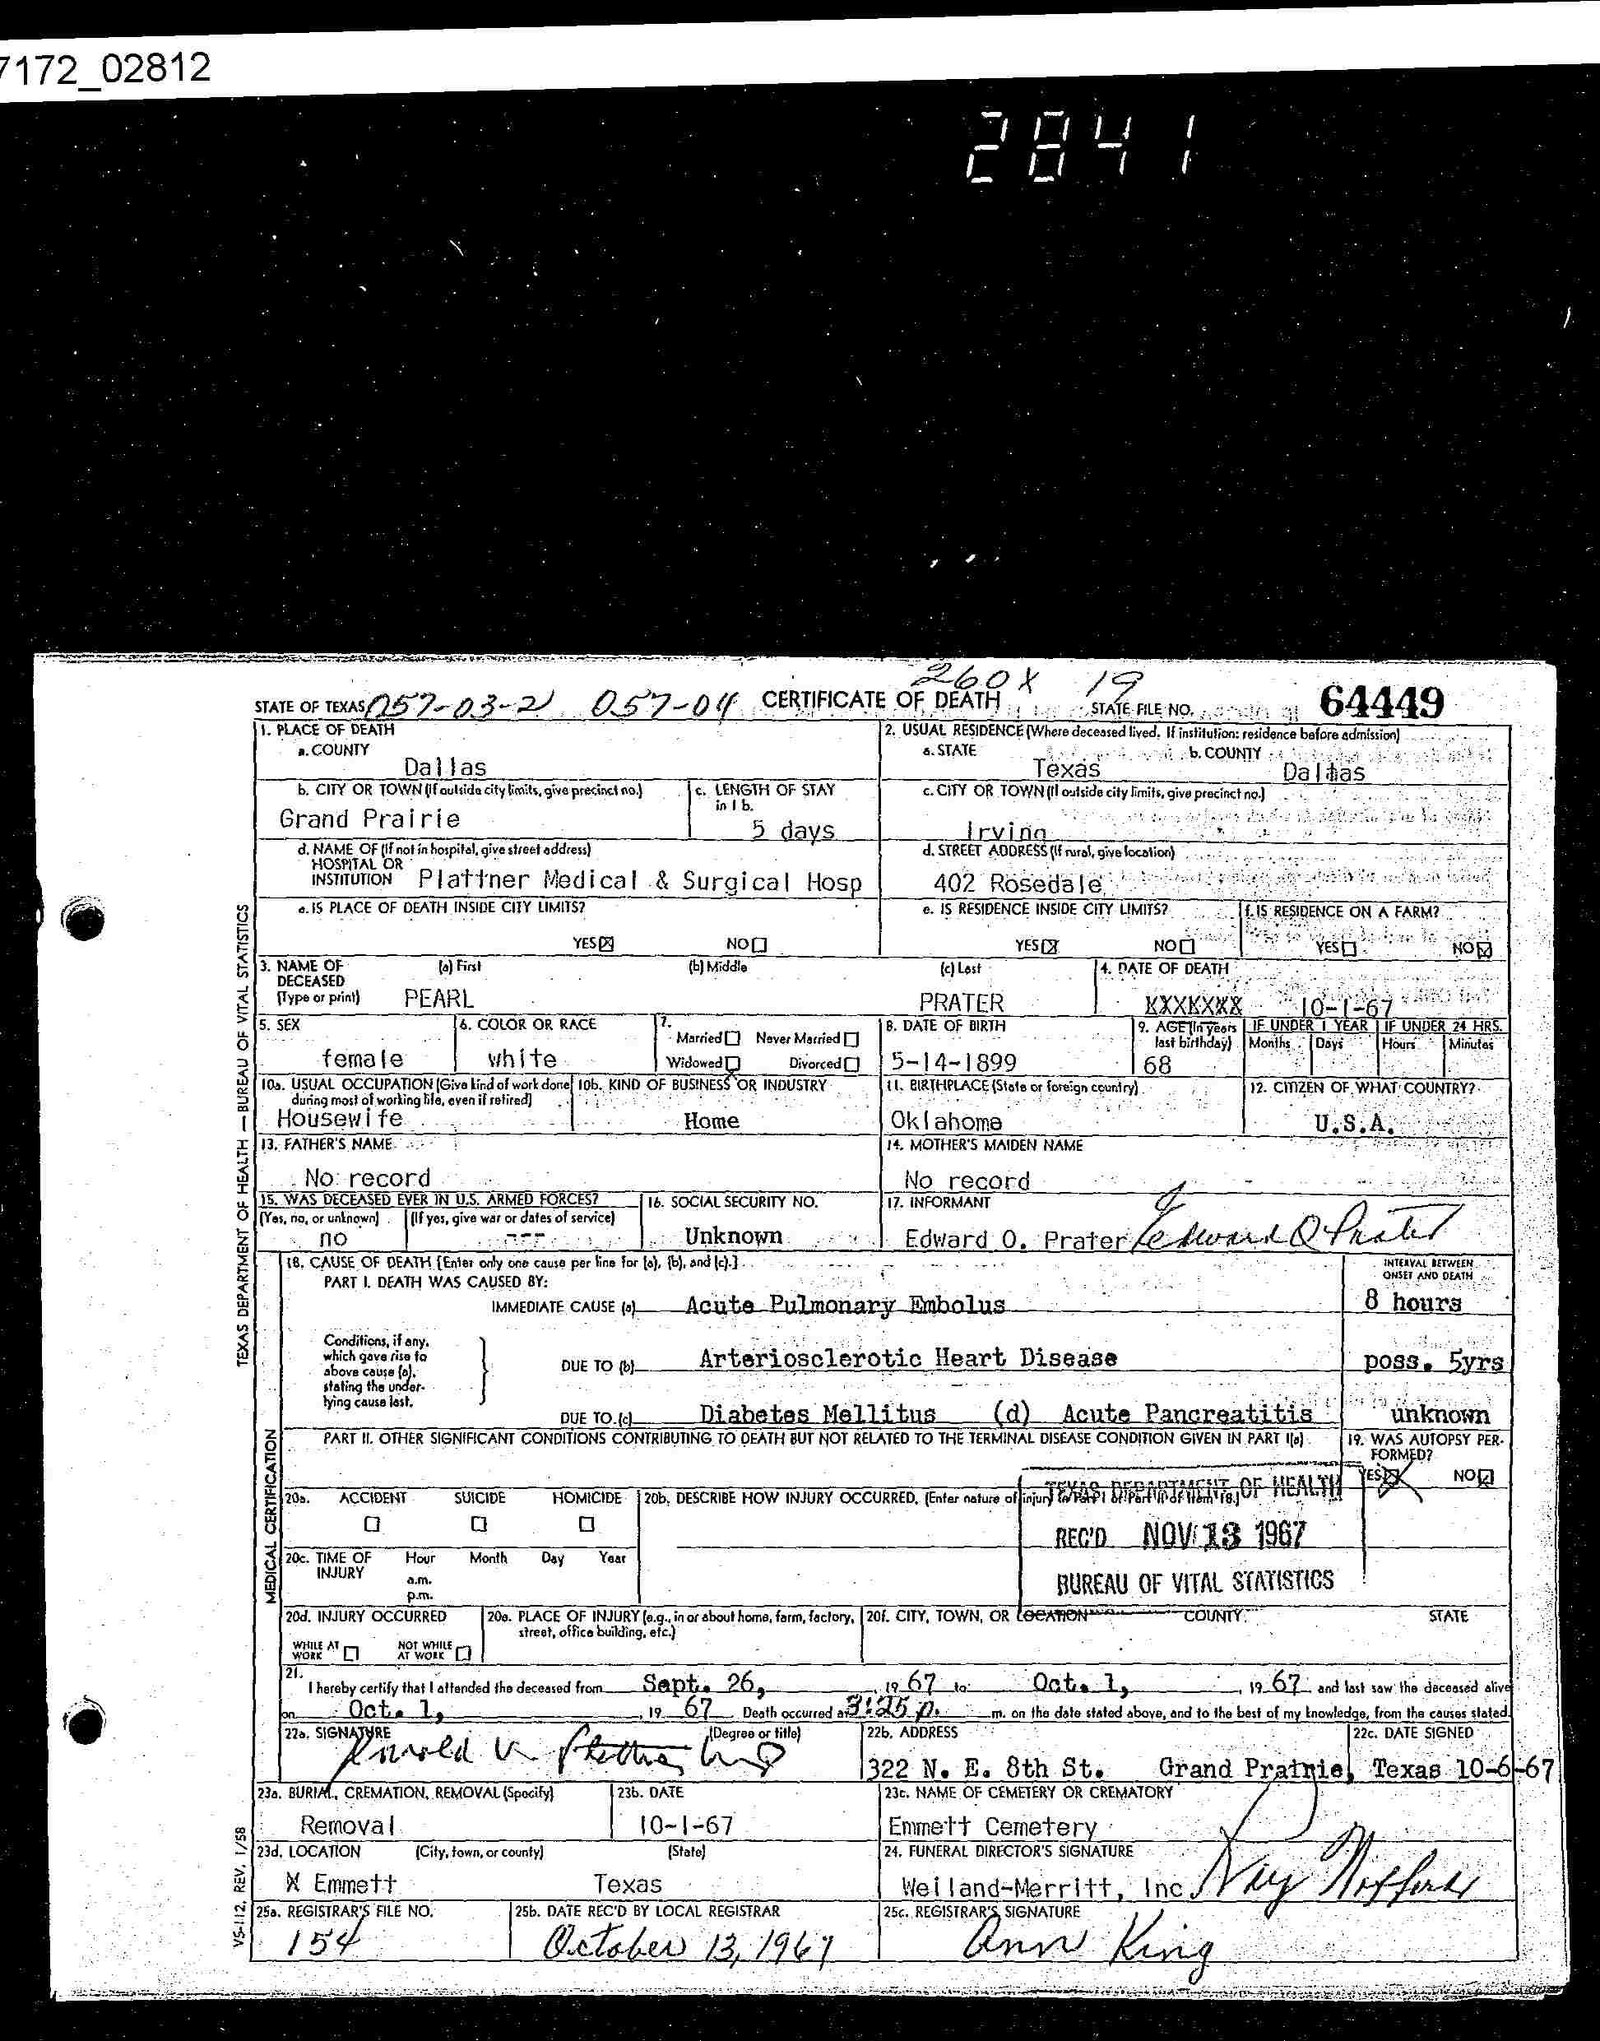 7172_02812
2841
260X 19
STATE OF TEXAS 057-03-2 057-04 CERTIFICATE OF DEATH STATE FILE NO. 64449
1. PLACE OF DEATH
a. COUNTY
Dallas
2. USUAL RESIDENCE (Where deceased lived. If institution: residence before admission)
a. STATE b. COUNTY
Texas Dallas
b. CITY OR TOWN (If outside city limits, give precinct no.)
Grand Prairie
c. LENGTH OF STAY
in 1 b.
5 days
c. CITY OR TOWN (If outside city limits, give precinct no.)
Irving
d. NAME OF (If not in hospital, give street address)
HOSPITAL OR
INSTITUTION Plattner Medical & Surgical Hosp
d. STREET ADDRESS (If rural, give location)
402 Rosedale
e. IS PLACE OF DEATH INSIDE CITY LIMITS?
YES☒ NO☐
e. IS RESIDENCE INSIDE CITY LIMITS?
YES☒ NO☐
f. IS RESIDENCE ON A FARM?
YES☐ NO☒
3. NAME OF DECEASED
(Type or print)
(a) First (b) Middle (c) Last
PEARL PRATER
4. DATE OF DEATH
10-1-67
5. SEX
female
6. COLOR OR RACE
white
7.
Married☐ Never Married☐
Widowed☐ Divorced☐
8. DATE OF BIRTH
5-14-1899
9. AGE (In years
last birthday)
68
IF UNDER 1 YEAR IF UNDER 24 HRS.
Months Days Hours Minutes
10a. USUAL OCCUPATION (Give kind of work done
during most of working life, even if retired)
Housewife
10b. KIND OF BUSINESS OR INDUSTRY
Home
11. BIRTHPLACE (State or foreign country)
Oklahoma
12. CITIZEN OF WHAT COUNTRY?
U.S.A.
13. FATHER'S NAME
No record
14. MOTHER'S MAIDEN NAME
No record
15. WAS DECEASED EVER IN U.S. ARMED FORCES?
(Yes, no, or unknown) (If yes, give war or dates of service)
no ---
16. SOCIAL SECURITY NO.
Unknown
17. INFORMANT
Edward O. Prater Edward O Prater
18. CAUSE OF DEATH [Enter only one cause per line for (a), (b), and (c).]
PART I. DEATH WAS CAUSED BY:
INTERVAL BETWEEN
ONSET AND DEATH
IMMEDIATE CAUSE (a) Acute Pulmonary Embolus 8 hours
Conditions, if any,
which gave rise to
above cause (a),
stating the under-
lying cause last.
DUE TO (b) Arteriosclerotic Heart Disease poss. 5yrs
DUE TO (c) Diabetes Mellitus (d) Acute Pancreatitis unknown
PART II. OTHER SIGNIFICANT CONDITIONS CONTRIBUTING TO DEATH BUT NOT RELATED TO THE TERMINAL DISEASE CONDITION GIVEN IN PART I(a)
19. WAS AUTOPSY PER-
FORMED?
YES☒ NO☒
20a. ACCIDENT SUICIDE HOMICIDE
20b. DESCRIBE HOW INJURY OCCURRED. (Enter nature of injury in Part I or Part II of Item 18.)
TEXAS DEPARTMENT OF HEALTH
REC'D NOV 13 1967
BUREAU OF VITAL STATISTICS
20c. TIME OF
INJURY
Hour Month Day Year
a.m.
p.m.
20d. INJURY OCCURRED
WHILE AT
WORK ☐
NOT WHILE
AT WORK ☐
20e. PLACE OF INJURY (e.g., in or about home, farm, factory,
street, office building, etc.)
20f. CITY, TOWN, OR LOCATION COUNTY STATE
21.
I hereby certify that I attended the deceased from Sept. 26, 19 67 to Oct. 1, 19 67 and last saw the deceased alive
on Oct. 1, 19 67 Death occurred at 3:25 p. m. on the date stated above, and to the best of my knowledge, from the causes stated.
22a. SIGNATURE (Degree or title)
22b. ADDRESS
322 N. E. 8th St. Grand Prairie, Texas
22c. DATE SIGNED
10-6-67
23a. BURIAL, CREMATION, REMOVAL (Specify)
Removal
23b. DATE
10-1-67
23c. NAME OF CEMETERY OR CREMATORY
Emmett Cemetery
23d. LOCATION (City, town, or county) (State)
X Emmett Texas
24. FUNERAL DIRECTOR'S SIGNATURE
Weiland-Merritt, Inc.
25a. REGISTRAR'S FILE NO.
154
25b. DATE REC'D BY LOCAL REGISTRAR
October 13, 1967
25c. REGISTRAR'S SIGNATURE
Ann King
TEXAS DEPARTMENT OF HEALTH — BUREAU OF VITAL STATISTICS
MEDICAL CERTIFICATION
VS-112, REV. 1/58